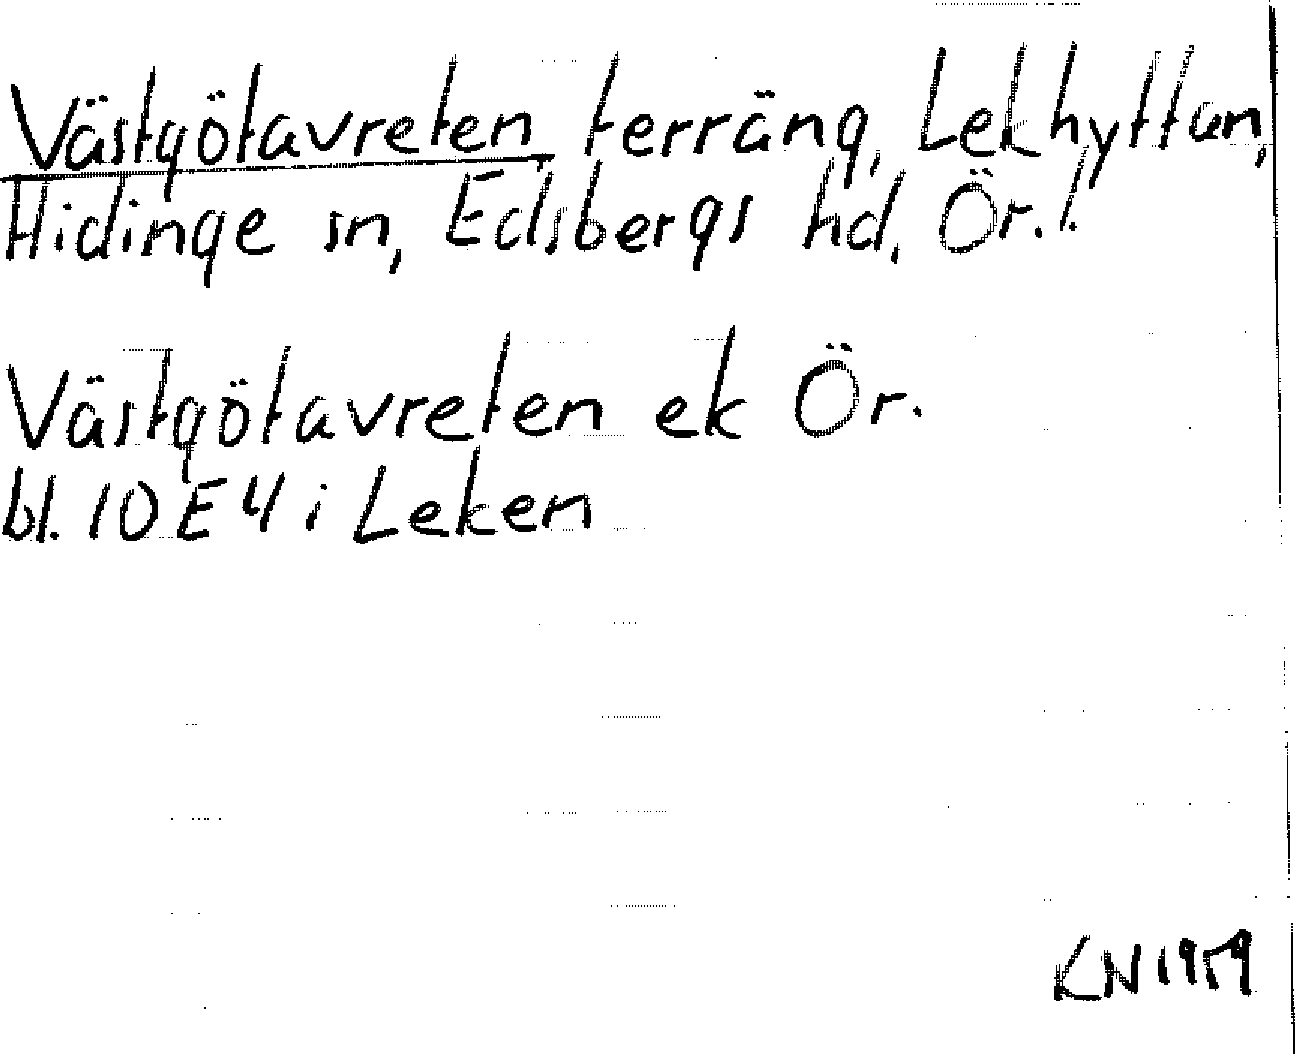 Västgötavreten, terräng, Lekhyttan,
Hidinge sn, Edsbergs hd, Ör.l.
Västgötavreten ek Ör.
bl. 10 E 4 i Leken
KN 1959